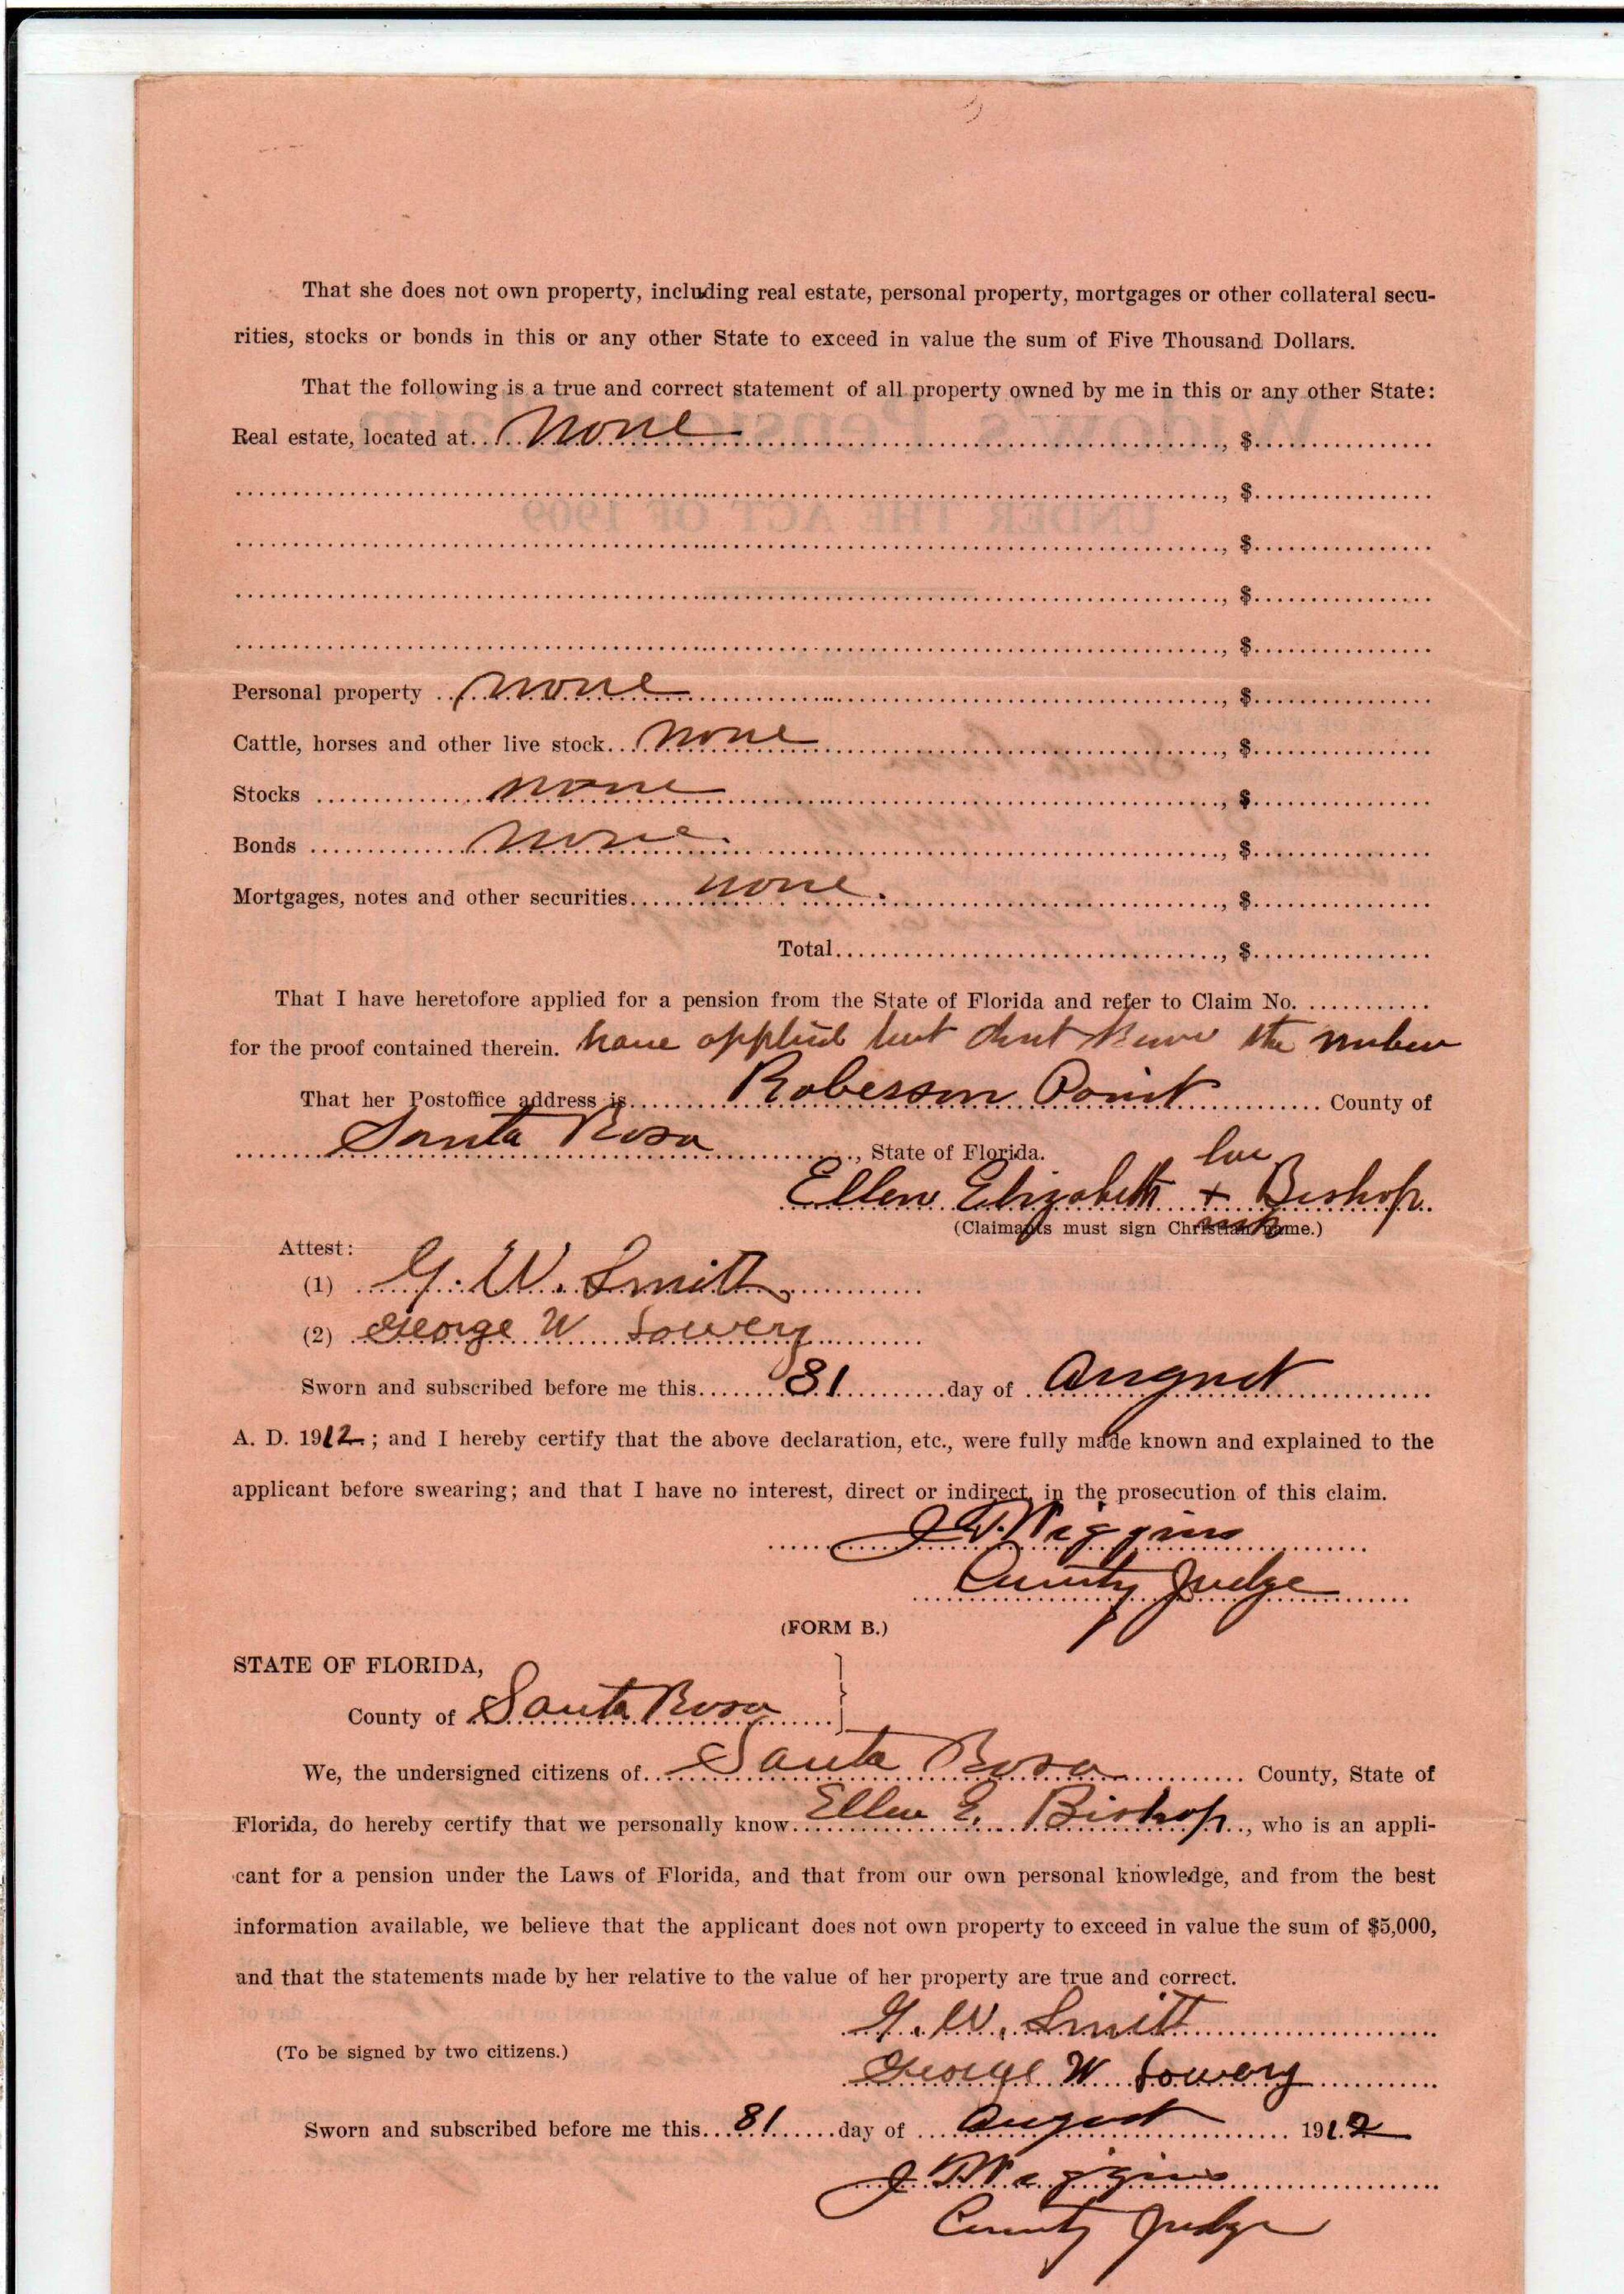 That she does not own property, including real estate, personal property, mortgages or other collateral secu-
rities, stocks or bonds in this or any other State to exceed in value the sum of Five Thousand Dollars.
That the following is a true and correct statement of all property owned by me in this or any other State:
Real estate, located at.. none ............, $................
............, $................
............, $................
............, $................
............, $................
Personal property .. none ............, $................
Cattle, horses and other live stock... none ............, $................
Stocks ........ none ............, $................
Bonds ........ none. ............, $................
Mortgages, notes and other securities..... none. ............, $................
Total............, $................
That I have heretofore applied for a pension from the State of Florida and refer to Claim No. ...........
for the proof contained therein. have applied but dont know the
That her Postoffice address is..... Roberson Point ............ County of
........ Santa Rosa ............, State of Florida.
her
Ellen Elizabeth + Bishop
(Claimants must sign Christian name.)
Attest:
(1) G. W. Smith
(2) George W Lowery
Sworn and subscribed before me this....... 31 ..........day of .. August
A. D. 1912.; and I hereby certify that the above declaration, etc., were fully made known and explained to the
applicant before swearing; and that I have no interest, direct or indirect, in the prosecution of this claim.
Wiggins
County Judge
(FORM B.)
STATE OF FLORIDA,
County of Santa Rosa
We, the undersigned citizens of.. Santa Rosa ............ County, State of
Florida, do hereby certify that we personally know.. Ellen E. Bishop .., who is an appli-
cant for a pension under the Laws of Florida, and that from our own personal knowledge, and from the best
information available, we believe that the applicant does not own property to exceed in value the sum of $5,000,
and that the statements made by her relative to the value of her property are true and correct.
G. W. Smith
(To be signed by two citizens.)
George W Lowery
Sworn and subscribed before me this... 31 ......day of .... August ............ 1912
Wiggins
County Judge